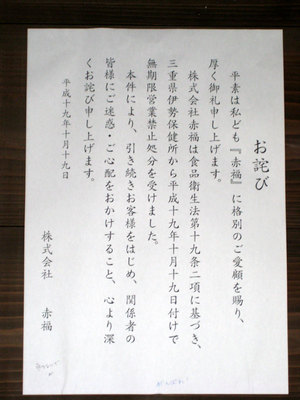 お詫び
平素は私ども『赤福』に格別のご愛顧を賜り、
厚く御礼申し上げます。
株式会社赤福は食品衛生法第十九条二項に基づき、
三重県伊勢保健所から平成十九年十月十九日付けで
無期限営業禁止処分を受けました。
本件により、引き続きお客様をはじめ、関係者の
皆様にご迷惑・ご心配をおかけすること、心より深
くお詫び申し上げます。
平成十九年十月十九日
株式会社 赤福
がんばれ